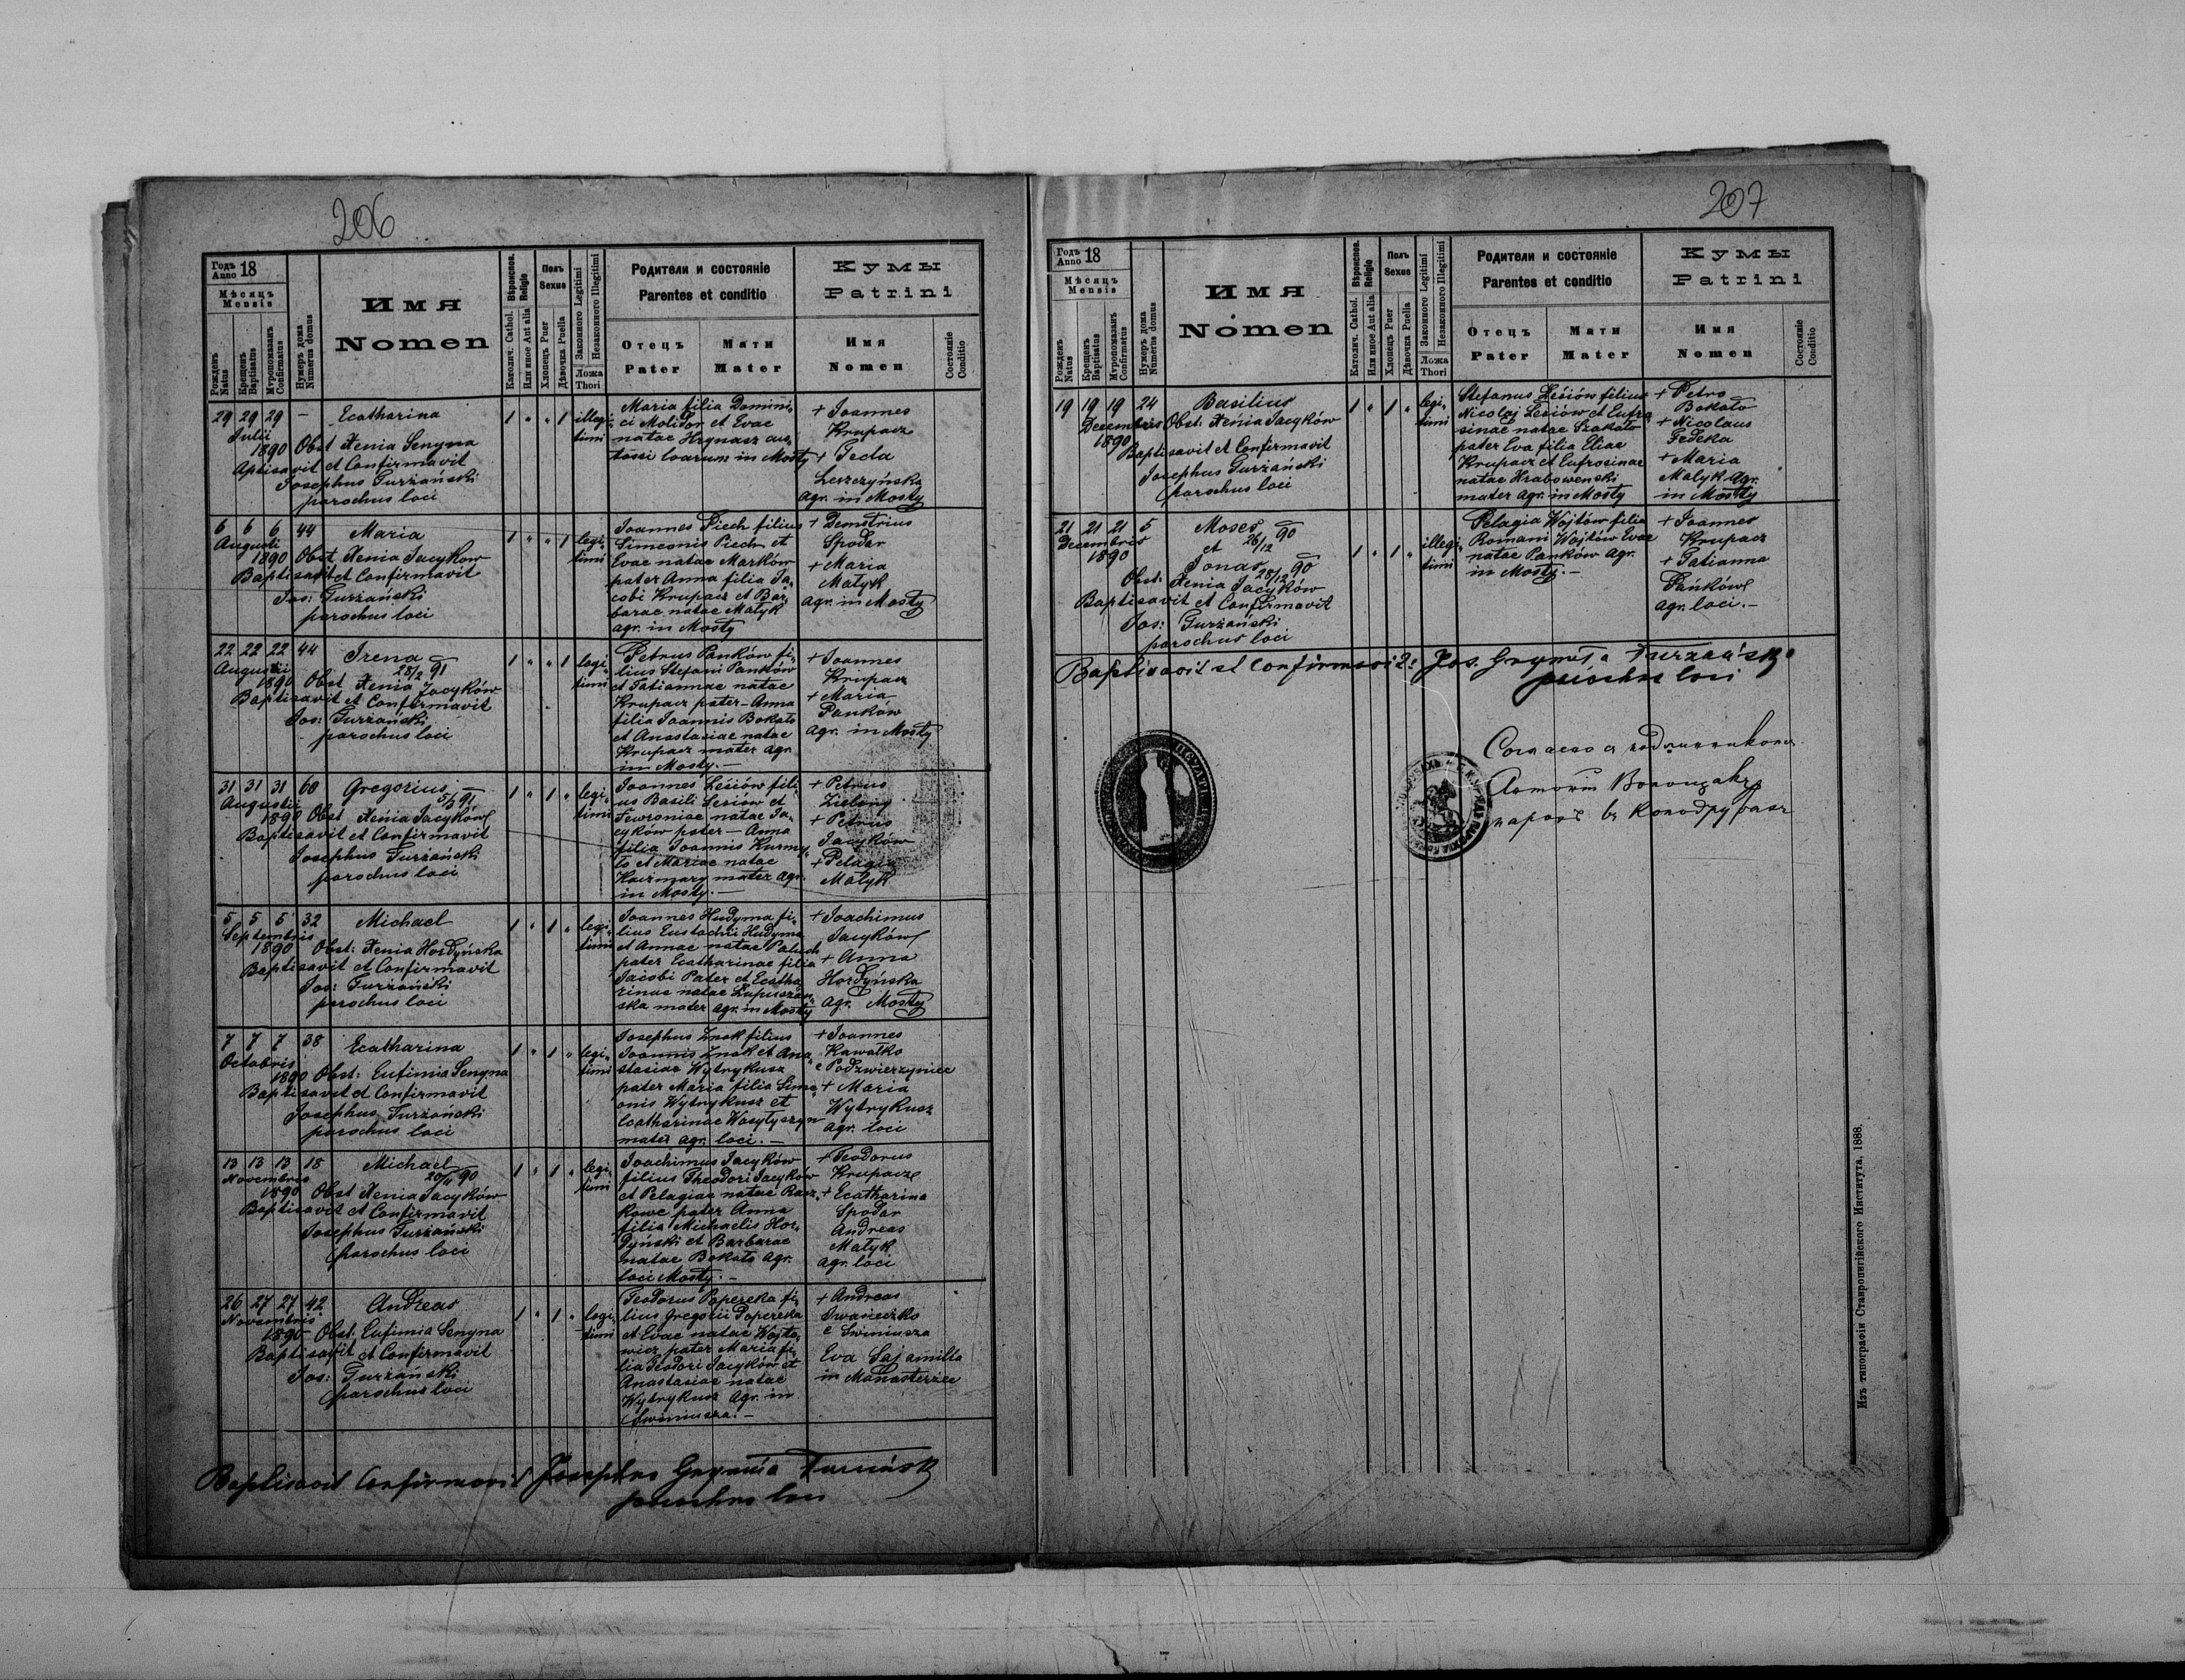 206
Годъ Anno 18
Мѣсяцъ
Mensis
Рожденъ Natus
Крещенъ Baptisatus
Мѵропомазанъ Confirmatus
Нумеръ дома Numerus domus
Имя
Nomen
Католич. Cathol. Вѣроиспов. Religio
Или иное Aut alia
Полъ
Sexus
Хлопецъ Puer
Дѣвочка Puella
Законного Legitimi
Незаконного Illegitimi
Ложа
Thori
Родители и состояніе
Parentes et conditio
Отецъ
Pater
Мати
Mater
Кумы
Patrini
Имя
Nomen
Состояніе
Conditio
29 29 29 –
Julii
1890
Ecatharina
Obst Xenia Senyna
Baptisavit et Confirmavit
Josephus Turzański
parochus loci
1 " " 1
illegi-
timi
Maria filia Domini-
ci Molidor et Evae
natae Hrynasz cus-
in Mosty
+ Joannes
Krupacz
+ Tecla
Leszczyńska
agr. in Mosty
6 6 6 44
Augusti
1890
Maria
Obst Xenia Jacyków
Baptisavit et Confirmavit
Jos: Turzański
parochus loci
1 " " 1
legi-
timi
Joannes Piech filius
Simeonis Piech et
Evae natae Marków
pater Anna filia Ja-
cobi Krupacz et Bar-
barae natae Matyk
agr. in Mosty
+ Demetrius
Spodar
+ Maria
Matyk
agr. in Mosty
22 22 22 44
Augusti
1890
Irena
28/2 91
Obst Xenia Jacyków
Baptisavit et Confirmavit
Jos: Turzański
parochus loci
1 " " 1
legi-
timi
Petrus Panków fi-
lius Stefani Panków
et Tatiannae natae
Krupacz pater – Anna
filia Joannis Bokało
et Anastasiae natae
Krupacz mater agr.
in Mosty. –
+ Joannes
Krupacz
+ Maria
Panków
agr. in Mosty
31 31 31 60
Augusti
1890
Gregorius
5/3 91
Obst Xenia Jacyków
Baptisavit et Confirmavit
Josephus Turzański
parochus loci
1 " 1 "
legi-
timi
Joannes Lésiów fili-
us Basili Lesiów et
Fewroniae natae Ja-
cyków pater – Anna
filia Joannis Kurmy-
ło et Mariae natae
Kaczmary mater agr.
in Mosty. –
+ Petrus
Zielony
+ Petrus
Jacyków
+ Pelagia
Matyk
5 5 5 32
Septembris
1890
Michael
Obst: Xenia Hordyńska
Baptisavit et Confirmavit
Jos: Turzański
parochus loci
1 " 1 "
legi-
timi
Joannes Hudyma fi-
lius Eustachii Hudyma
et Annae natae Paluch
pater Ecatharinae filia
Jacobi Pater et Ecatha-
rinae natae Łapuszan-
ska mater agr. in Mosty
+ Joachimus
Jacyków
+ Anna
Hordyńska
agr. Mosty
7 7 7 38
Octobris
1890
Ecatharina
Obst: Eufimia Senyna
Baptisavit et Confirmavit
Josephus Turzański
parochus loci
1 " 1 "
legi-
timi
Josephus Znak filius
Joannis Znak et Ana-
stasiae Wytrykusz
pater Maria filia Sime-
onis Wytrykusz et
Ecatharinae Wasytyszyn
mater agr. loci. –
+ Joannes
Kawałko
e Podzwierzyniec
+ Maria
Wytrykusz
agr. loci
13 13 13 18
Novembris
1890
Michael
20/11 90
Obst Xenia Jacyków
Baptisavit et Confirmavit
Josephus Turzański
parochus loci
1 " 1 "
legi-
timi
Joachimus Jacyków
filius Theodori Jacyków
et Pelagiae natae Racz-
kowe pater Anna
filia Michaelis Hor-
dyński et Barbarae
natae Bokało agr.
loci Mosty. –
+ Teodorus
Krupacz
+ Ecatharina
Spodar
Andreas
Matyk
agr. loci
26 27 27 42
Novembris
1890
Andreas
Obst. Eufimia Senyna
Baptisavit et Confirmavit
Jos: Turzański
parochus loci
1 " 1 "
legi-
timi
Teodorus Papereka fi-
lius Gregorii Papereka
et Evae natae Wojto-
wicz pater Maria fi-
lia Teodori Jacyków et
Anastasiae natae
Wytrykusz agr. in
Swiniusza. –
+ Andreas
Iwasieczko
e Swiniusza
Eva Sajamilla
in Manasterzec
Baptisavit Confirmavit Josephus Turzański
parochus loci
207
Годъ Anno 18
Мѣсяцъ
Mensis
Рожденъ Natus
Крещенъ Baptisatus
Мѵропомазанъ Confirmatus
Нумеръ дома Numerus domus
Имя
Nomen
Католич. Cathol. Вѣроиспов. Religio
Или иное Aut alia
Полъ
Sexus
Хлопецъ Puer
Дѣвочка Puella
Законного Legitimi
Незаконного Illegitimi
Ложа
Thori
Родители и состояніе
Parentes et conditio
Отецъ
Pater
Мати
Mater
Кумы
Patrini
Имя
Nomen
Состояніе
Conditio
19 19 19 24
Decembris
1890
Basilius
Obst: Xenia Jacyków
Baptisavit et Confirmavit
Josephus Turzański
parochus loci
1 " 1 "
legi-
timi
Stefanus Lésiów filius
Nicolaj Lesiów et Eufro-
sinae natae Szakało
pater Eva filia Eliae
Krupacz et Eufrosinae
natae Hrabowenski
mater agr. in Mosty
+ Petro
Bokało
+ Nicolaus
Fedeka
+ Maria
Matyk agr.
in Mosty
21 21 21 5
Decembris
1890
Moses
26/12 90
et
Jonas
28/12 90
Obst: Xenia Jacyków
Baptisavit et Confirmavit
Jos: Turzański
parochus loci
1 " 1 "
illegi-
timi
Pelagia Wojtów filia
Romani Wojtów Evae
natae Panków agr.
in Mosty. –
+ Joannes
Krupacz
+ Tatianna
Pańków
agr. loci. –
Baptisavit et Confirmavit: Jos. Turzański
parochus loci
Согласно с
парох въ
Изъ типографіи Ставропигійского Института, 1888.